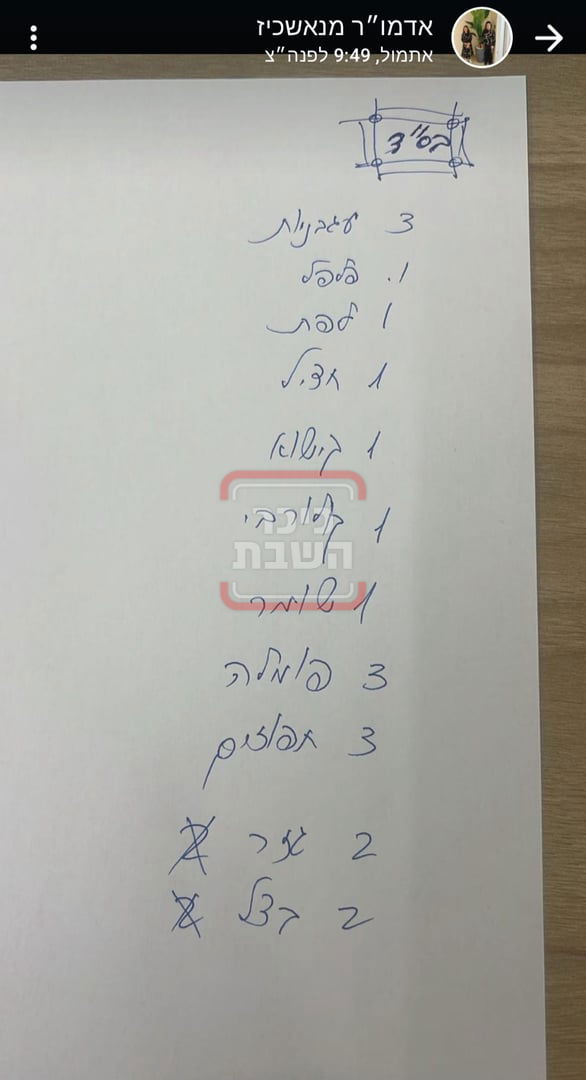 אדמו״ר מנאשכיז
אתמול, 9:49 לפנה״צ
בס"ד
3 עגבניות
1. פלפל
1 לפת
1 חציל
1 קישוא
1 קולורבי
כיכר
השבת
1 שומר
3 פומלה
3 תפוזים
2 גזר
2 בצל